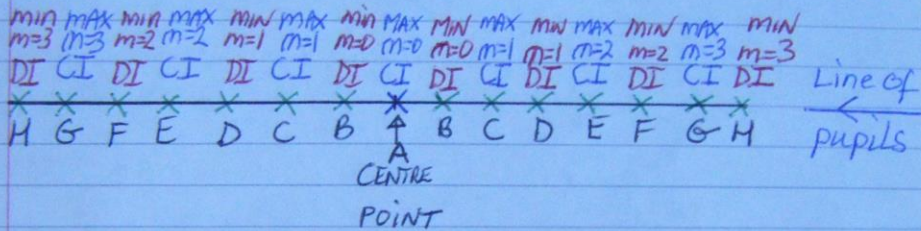 min MAX min MAX MIN MAX min MAX MIN MAX MIN MAX MIN MAX MIN
m=3 m=3 m=2 m=2 m=1 m=1 m=0 m=0 m=0 m=1 m=1 m=2 m=2 m=3 m=3
DI CI DI CI DI CI DI CI DI CI DI CI DI CI DI
Line of
H G F E D C B A B C D E F G H
pupils
CENTRE
POINT